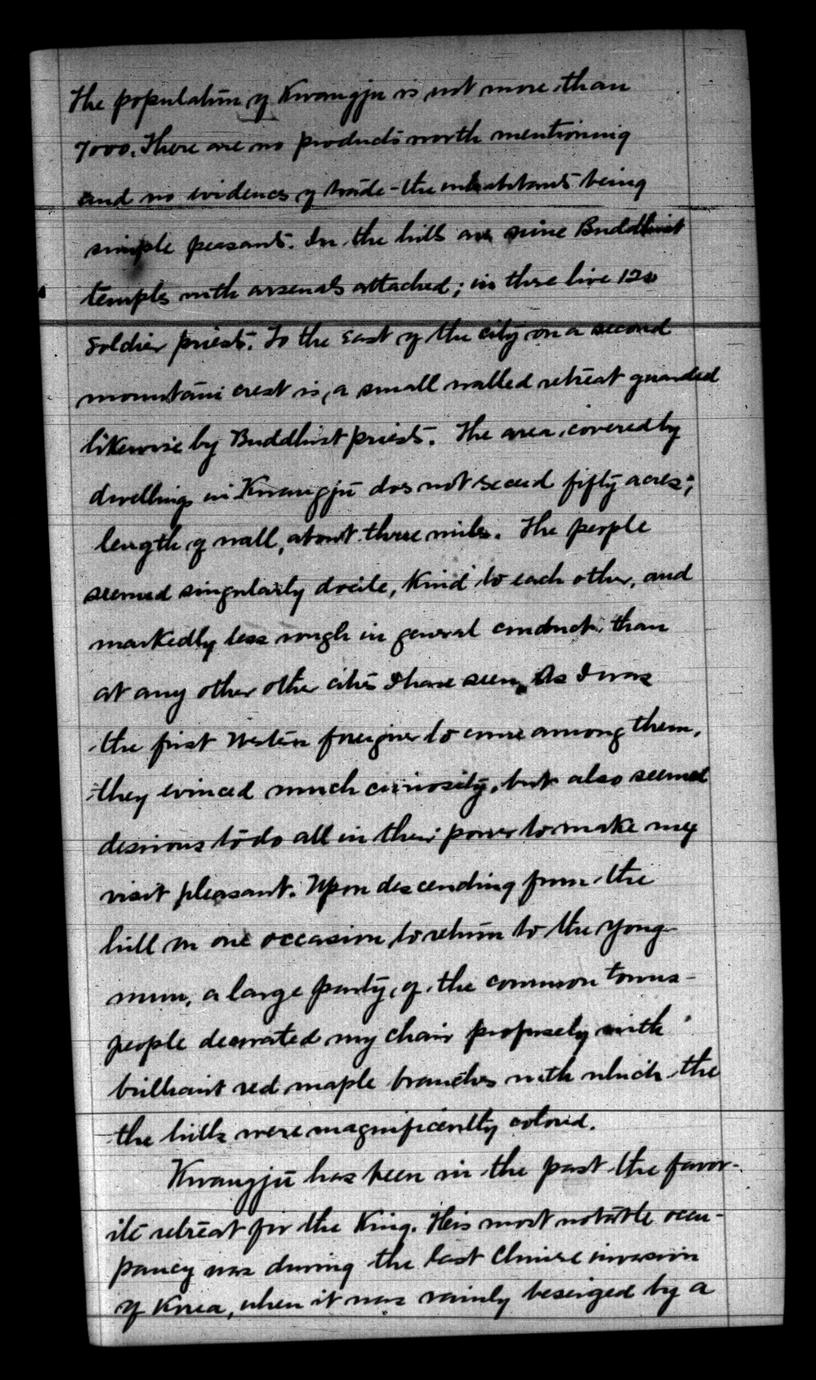 The population of Kwangju is not more than
7000. There are no products worth mentioning
and no evidences of trade - the inhabitants being
simple peasants. In the hills are nine Buddhist
temples with arsenals attached; in these live 120
soldier priests. To the East of the city on a second
mountain crest is, a small walled retreat guarded
likewise by Buddhist priests. The area covered by
dwellings in Kwangju does not exceed fifty acres;
length of wall, about three miles. The people
seemed singularly docile, kind to each other, and
markedly less rough in general conduct, than
at any other other cities I have seen. As I was
the first Western foreigner to come among them,
they evinced much curiosity, but also seemed
desirous to do all in their power to make my
visit pleasant. Upon descending from the
hill on one occasion to return to the Yong-
mun, a large party, of the common towns-
people decorated my chair profusely with
brilliant red maple branches with which the
the hills were magnificently colored.
Kwangju has been in the past the favor-
ite retreat for the King. His most notable occu-
pancy was during the last Chinese invasion
of Korea, when it was vainly beseiged by a